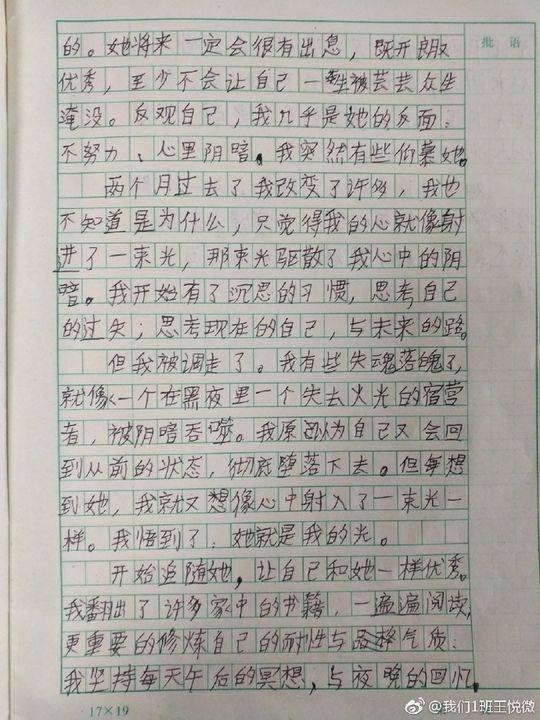 批 语
的。她将来一定会很有出息，既开朗又
优秀，至少不会让自己一生被芸芸众生
淹没。反观自己，我几乎是她的反面：
不努力、心里阴暗。我突然有些伯慕她。
两个月过去了我改变了许多，我也
不知道是为什么，只觉得我的心就像射
进了一束光，那束光驱散了我心中的阴
暗。我开始有了沉思的习惯，思考自己
的过失；思考现在的自己，与未来的路。
但我被调走了。我有些失魂落魄了，
就像一个在黑夜里一个失去火光的宿营
者，被阴暗吞噬。我原以为自己又会回
到从前的状态，彻底堕落下去。但每想
到她，我就又想像心中射入了一束光一
样。我悟到了：她就是我的光。
开始追随她，让自己和她一样优秀。
我翻出了许多家中的书籍，一遍遍阅读，
更重要的修炼自己的耐性与气质：
我坚持每天午后的冥想，与夜晚的回忆，
17×19
@我们1班王悦微